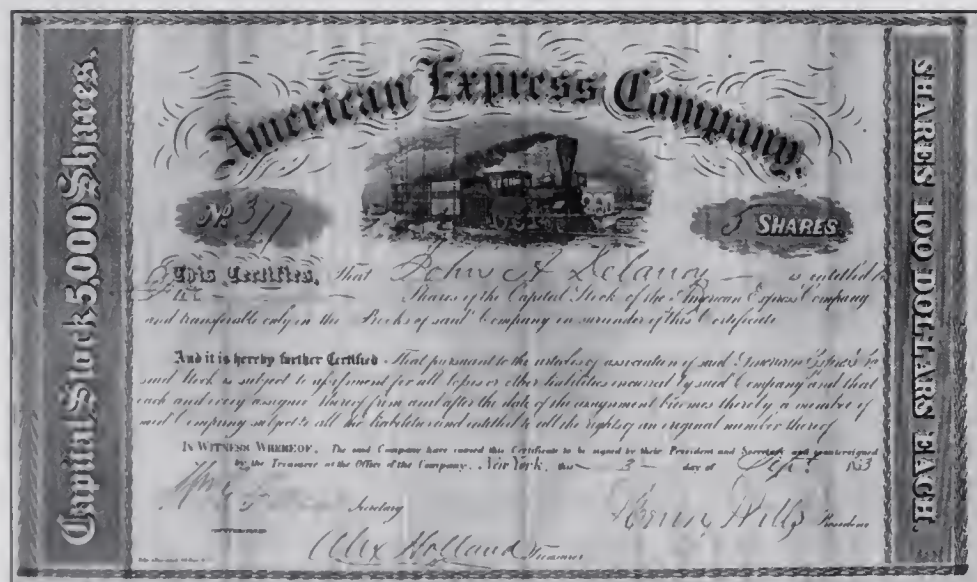 American Express Company.
Capital Stock 5,000 Shares.
SHARES 100 DOLLARS EACH.
No. 377
5 SHARES
This Certifies, That John A Delanoy is entitled to
Five Shares of the Capital Stock of the American Express Company
and transferable only in the Books of said Company on surrender of this Certificate
And it is hereby further Certified. That pursuant to the articles of association of said American Express Co
said Stock is subject to assessment for all losses or other liabilities incurred by said Company and that
each and every assignee thereof from and after the date of the assignment becomes thereby a member of
said Company subject to all the liabilities and entitled to all the rights of an original member thereof
IN WITNESS WHEREOF, The said Company have caused this Certificate to be signed by their President and Secretary and countersigned
by the Treasurer at the Office of the Company, New York, this 3 day of Sept. 1853
Secretary
Henry Wells President
Alex Holland Treasurer